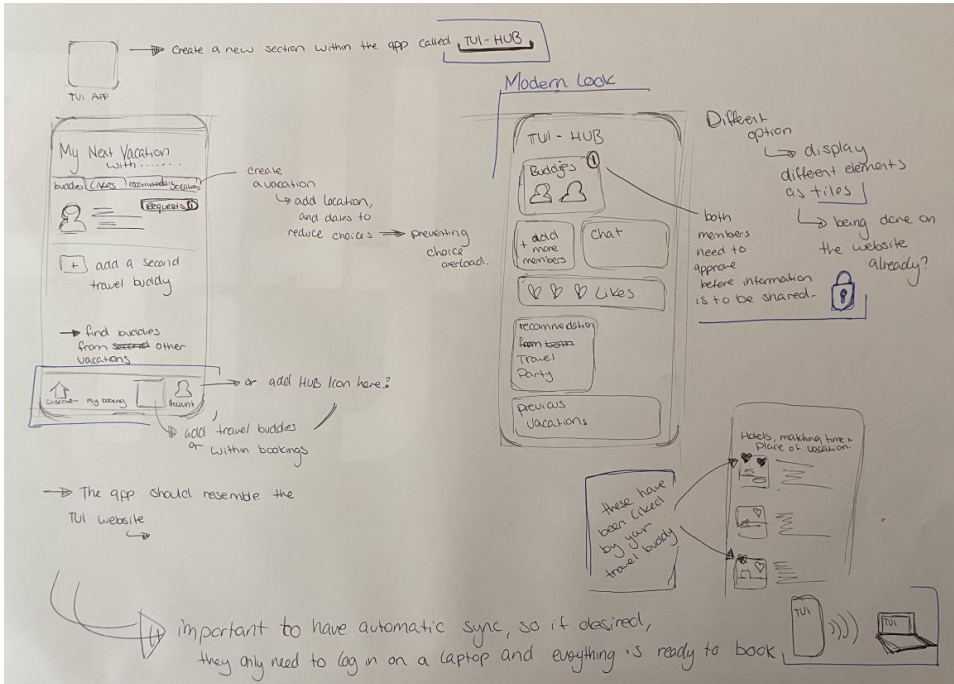 → Create a new section within the app called TUI-HUB
TUI APP
Modern Look
My Next Vacation
with.......
buddies
Likes
Requests 1
+ add a second
travel buddy
→ find buddies
from second other
vacations
My booking
Account
create
a vacation
↳ add location,
and dates to
reduce choices → preventing
choice
overload.
→ or add HUB Icon here?
→ add travel buddies
or within bookings
→ The app should resemble the
TUI website
TUI - HUB
Buddies 1
+ add
more
members
chat
Likes
recommodation
from
Travel
Party
previous
vacations
both
members
need to
approve
before information
is to be shared-
Different
option
↳ display
different elements
as tiles
↳ being done on
the website
already?
these have
been liked
by your
travel buddy
Hotels, matching time +
place of vacation
important to have automatic sync, so if desired,
they only need to log in on a laptop and everything is ready to book
TUI
TUI